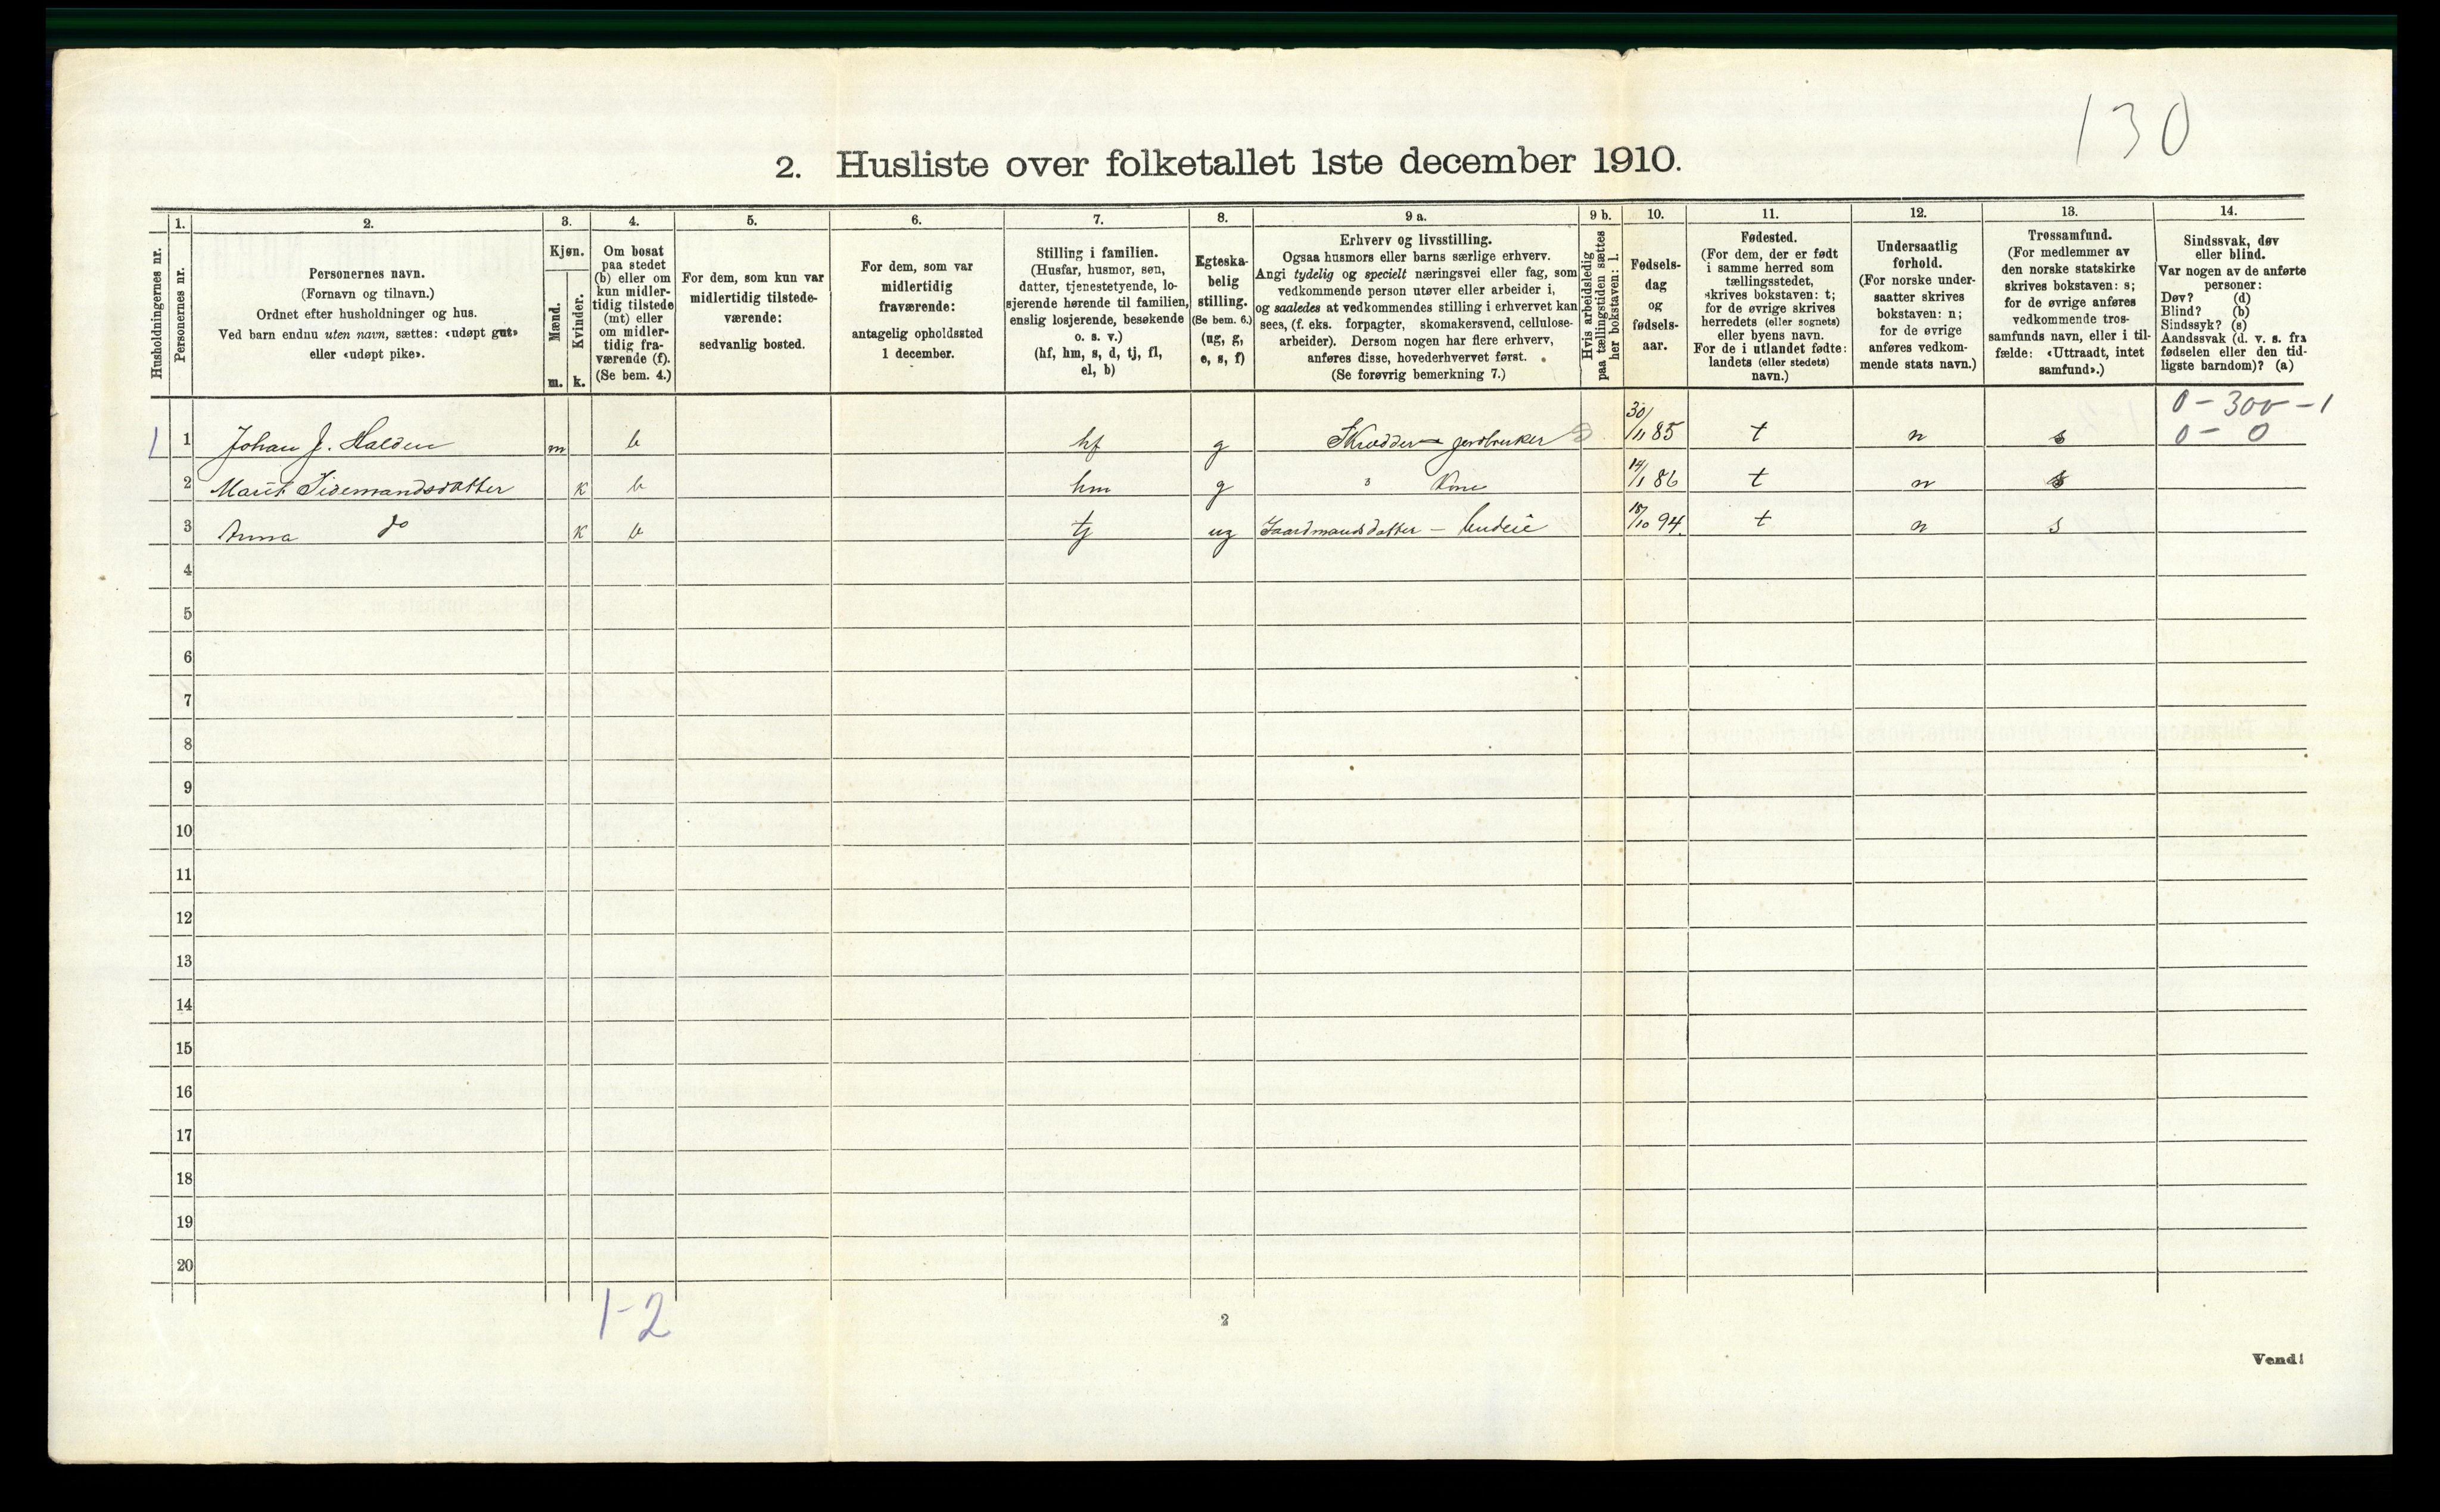 130
2. Husliste over folketallet 1ste december 1910.
1. 2. 3. 4. 5. 6. 7. 8. 9 a. 9 b. 10. 11. 12. 13. 14.
Husholdningernes nr.
Personernes nr.
Personernes navn.
(Fornavn og tilnavn.)
Ordnet efter husholdninger og hus.
Ved barn endnu uten navn, sættes: «udøpt gut»
eller «udøpt pike».
Kjøn.
Mænd.
Kvinder.
m. k.
Om bosat
paa stedet
(b) eller om
kun midler-
tidig tilstede
(mt) eller
om midler-
tidig fra-
værende (f).
(Se bem. 4.)
For dem, som kun var
midlertidig tilstede-
værende:
sedvanlig bosted.
For dem, som var
midlertidig
fraværende:
antagelig opholdssted
1 december.
Stilling i familien.
(Husfar, husmor, søn,
datter, tjenestetyende, lo-
sjerende hørende til familien,
enslig losjerende, besøkende
o. s. v.)
(hf, hm, s, d, tj, fl,
el, b)
Egteska-
belig
stilling.
(Se bem. 6.)
(ug, g,
e, s, f)
Erhverv og livsstilling.
Ogsaa husmors eller barns særlige erhverv.
Angi tydelig og specielt næringsvei eller fag, som
vedkommende person utøver eller arbeider i,
og saaledes at vedkommendes stilling i erhvervet kan
sees, (f. eks. forpagter, skomakersvend, cellulose-
arbeider). Dersom nogen har flere erhverv,
anføres disse, hovederhvervet først.
(Se forøvrig bemerkning 7.)
Hvis arbeidsledig
paa tællingstiden sættes
her bokstaven: l.
Fødsels-
dag
og
fødsels-
aar.
Fødested.
(For dem, der er født
i samme herred som
tællingsstedet,
skrives bokstaven: t;
for de øvrige skrives
herredets (eller sognets)
eller byens navn.
For de i utlandet fødte:
landets (eller stedets)
navn.)
Undersaatlig
forhold.
(For norske under-
saatter skrives
bokstaven: n;
for de øvrige
anføres vedkom-
mende stats navn.)
Trossamfund.
(For medlemmer av
den norske statskirke
skrives bokstaven: s;
for de øvrige anføres
vedkommende tros-
samfunds navn, eller i til-
fælde: «Uttraadt, intet
samfund».)
Sindssvak, døv
eller blind.
Var nogen av de anførte
personer:
Døv? (d)
Blind? (b)
Sindssyk? (s)
Aandssvak (d. v. s. fra
fødselen eller den tid-
ligste barndom)? (a)
0 - 300 - 1
1 1 Johan J. Halden m b hf g Skrædder - jordbruker 30/11 85 t n s 0 - 0
2 Marit Tidemandsdatter k b hm g " Kone 14/1 86 t n s
3 Anna do k b tj ug Gaardmandsdatter - budeie 18/10 94. t n s
4
5
6
7
8
9
10
11
12
13
14
15
16
17
18
19
20
1-2
2
Vend!